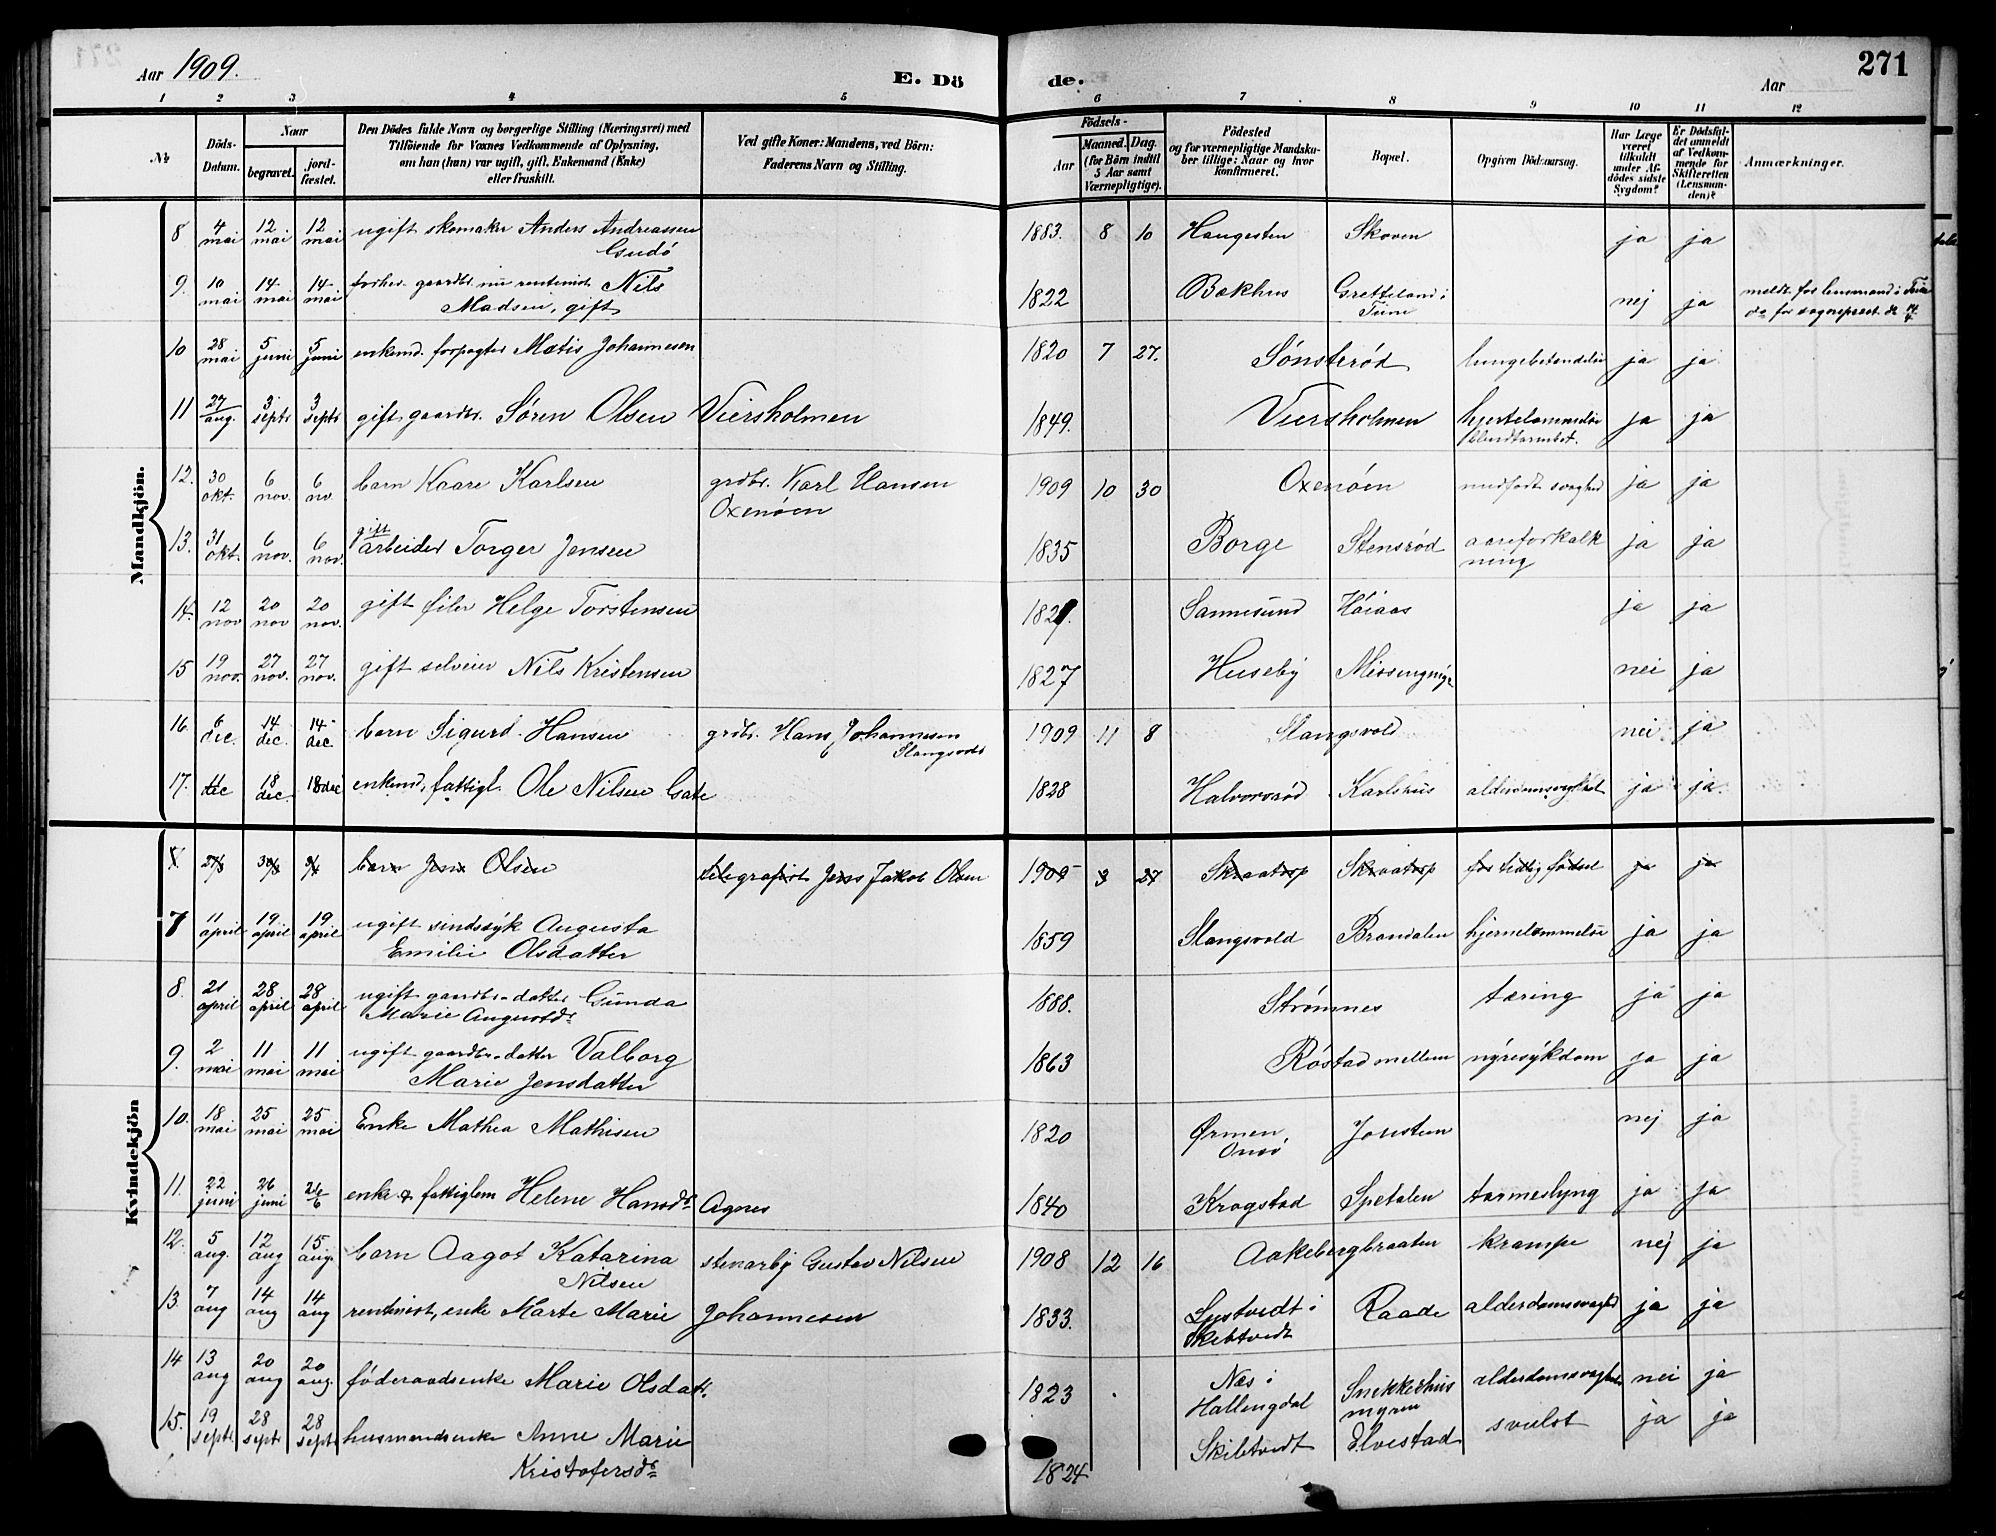 Aar 1909.
E. Dö
de.
Aar
271
1 2 3 4 5 6 7 8 9 10 11 12
No
Döds-
Datum.
Naar
begravet.
jord-
fæstet.
Den Dödes fulde Navn og borgerlige Stilling (Næringsvei) med
Tilföiende for Voxnes Vedkommende af Oplysning,
om han (hun) var ugift, gift, Enkemand (Enke)
eller fraskilt.
Ved gifte Koner: Mandens, ved Börn:
Faderens Navn og Stilling.
Födsels-
Aar
Maaned. Dag.
(for Börn indtil
5 Aar samt
Værnepligtige).
Födested
og for værnepligtige Mandska-
ber tillige: Naar og hvor
konfirmeret.
Bopæl.
Opgiven Dödsaarsag.
Har Læge
været
tilkaldt
under Af-
dödes sidste
Sygdom?
Er Dödsfal-
det anmeldt
af Vedkom-
mende for
Skifteretten
(Lensman-
den)?
Anmærkninger.
Mandkjön.
8 4 mai 12 mai 12 mai ugift skomaker Anders Andreassen 1883. 8 10 Haugesten Skoven ja ja
Gudö
9. 10 mai 14 mai 14 mai forhen. gaardbr. nu rentenist Nils 1822 Bakhus Gretteland i nej ja meldt for lensmand i Tune
Madsen, gift Tune do for sogneprest
10 28 mai 5 juni 5 juni enkemd. forpagter Matis Johannesen 1820 7 27. Sønsterød lungebetendelse ja ja
11 27 aug. 3 septr 3 septr gift gaardbr. Søren Olsen Viersholmen 1849. Viersholmen hjertelammelse ja ja
12. 30 okt. 6 nov. 6 nov. barn Kaare Karlsen grdbr. Karl Hansen 1909 10 30 Oxenöen medfødt svaghed ja ja
Oxenöen
13. 31 okt. 6 nov. 6 nov. gift arbeider Torger Jensen 1835 Borge Stensrød aareforkalk ja ja
ning
14. 12 nov 20 nov 20 nov. gift feler Helge Torstensen Sannesund Höiaas ja ja
15 19 nov. 27 nov. 27 nov. gift selveier Nils Kristensen 1827 Huseby nei ja
16. 6 dec. 14 dec. 14 dec. barn Sigurd Hansen grdbr. Hans Johannesen 1909 11 8 Slangsvold nei ja
Slangsvold
17. dec 18 dec. 18 dec enkemd, fattigl. Ole Nilsen Gate 1828 Halvorsrød Karlshus alderdomssvaghed ja ja.
Kvindekjön
27/3 30/3 barn Jens Olsen telegrafist Jens Jakob Olsen 1909 3 27 Skraatorp Skraatorp for tidlig fødsel ja ja
7 11 april 19 april 19 april ugift sindssyk Augusta 1859 Slangsvold Brandalen hjernelammelse ja ja
Emilie Olsdatter
8. 21 april 28 april 28 april ugift gaardbr.-datter Gunda 1888. Strømnes tæring ja ja
Marie Augustdr
9. 2 mai 11 mai 11 mai ugift gaardbr.-datter Valborg 1863 Röstad mellem nyresykdom ja ja
Marie Jensdatter
10. 18 mai 25 mai 25 mai Enke Mathea Mathisen 1820 Ørmen, Jonsten nej ja
Onsö
11. 22 juni 26 juni 26/6 enke & fattiglem Helene Hansdr Agnes 1840 Krogstad Spetalen tarmeslyng ja ja
12. 5 aug. 12 aug 15 aug. barn Aagot Katarina stenarb. Gustav Nilsen 1908 12 16 Aakebergbraaten krampe nej ja
Nilsen
13. 7 aug 14 aug 14 aug rentenist, enke Marte Marie Johannesen 1833. Lystvedt i Raade alderdomssvaghed ja ja
Skibtvedt
14 13 aug 20 aug 20 aug. föderaadsenke Marie Olsdatr. 1823 Næs i Snekkerhus alderdomssvaghed nei ja
Hallingdal myren
15. 19 septr 28 septr 28 septr husmandsenke Anne Marie Skibtvedt Elvestad svulst ja ja
Kristofersdr 1824